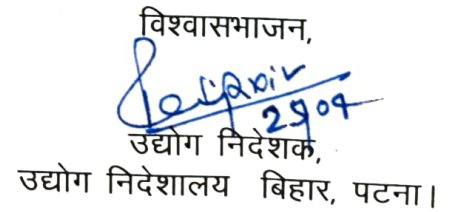 विश्वासभाजन,
उद्योग निदेशक,
उद्योग निदेशालय बिहार, पटना।